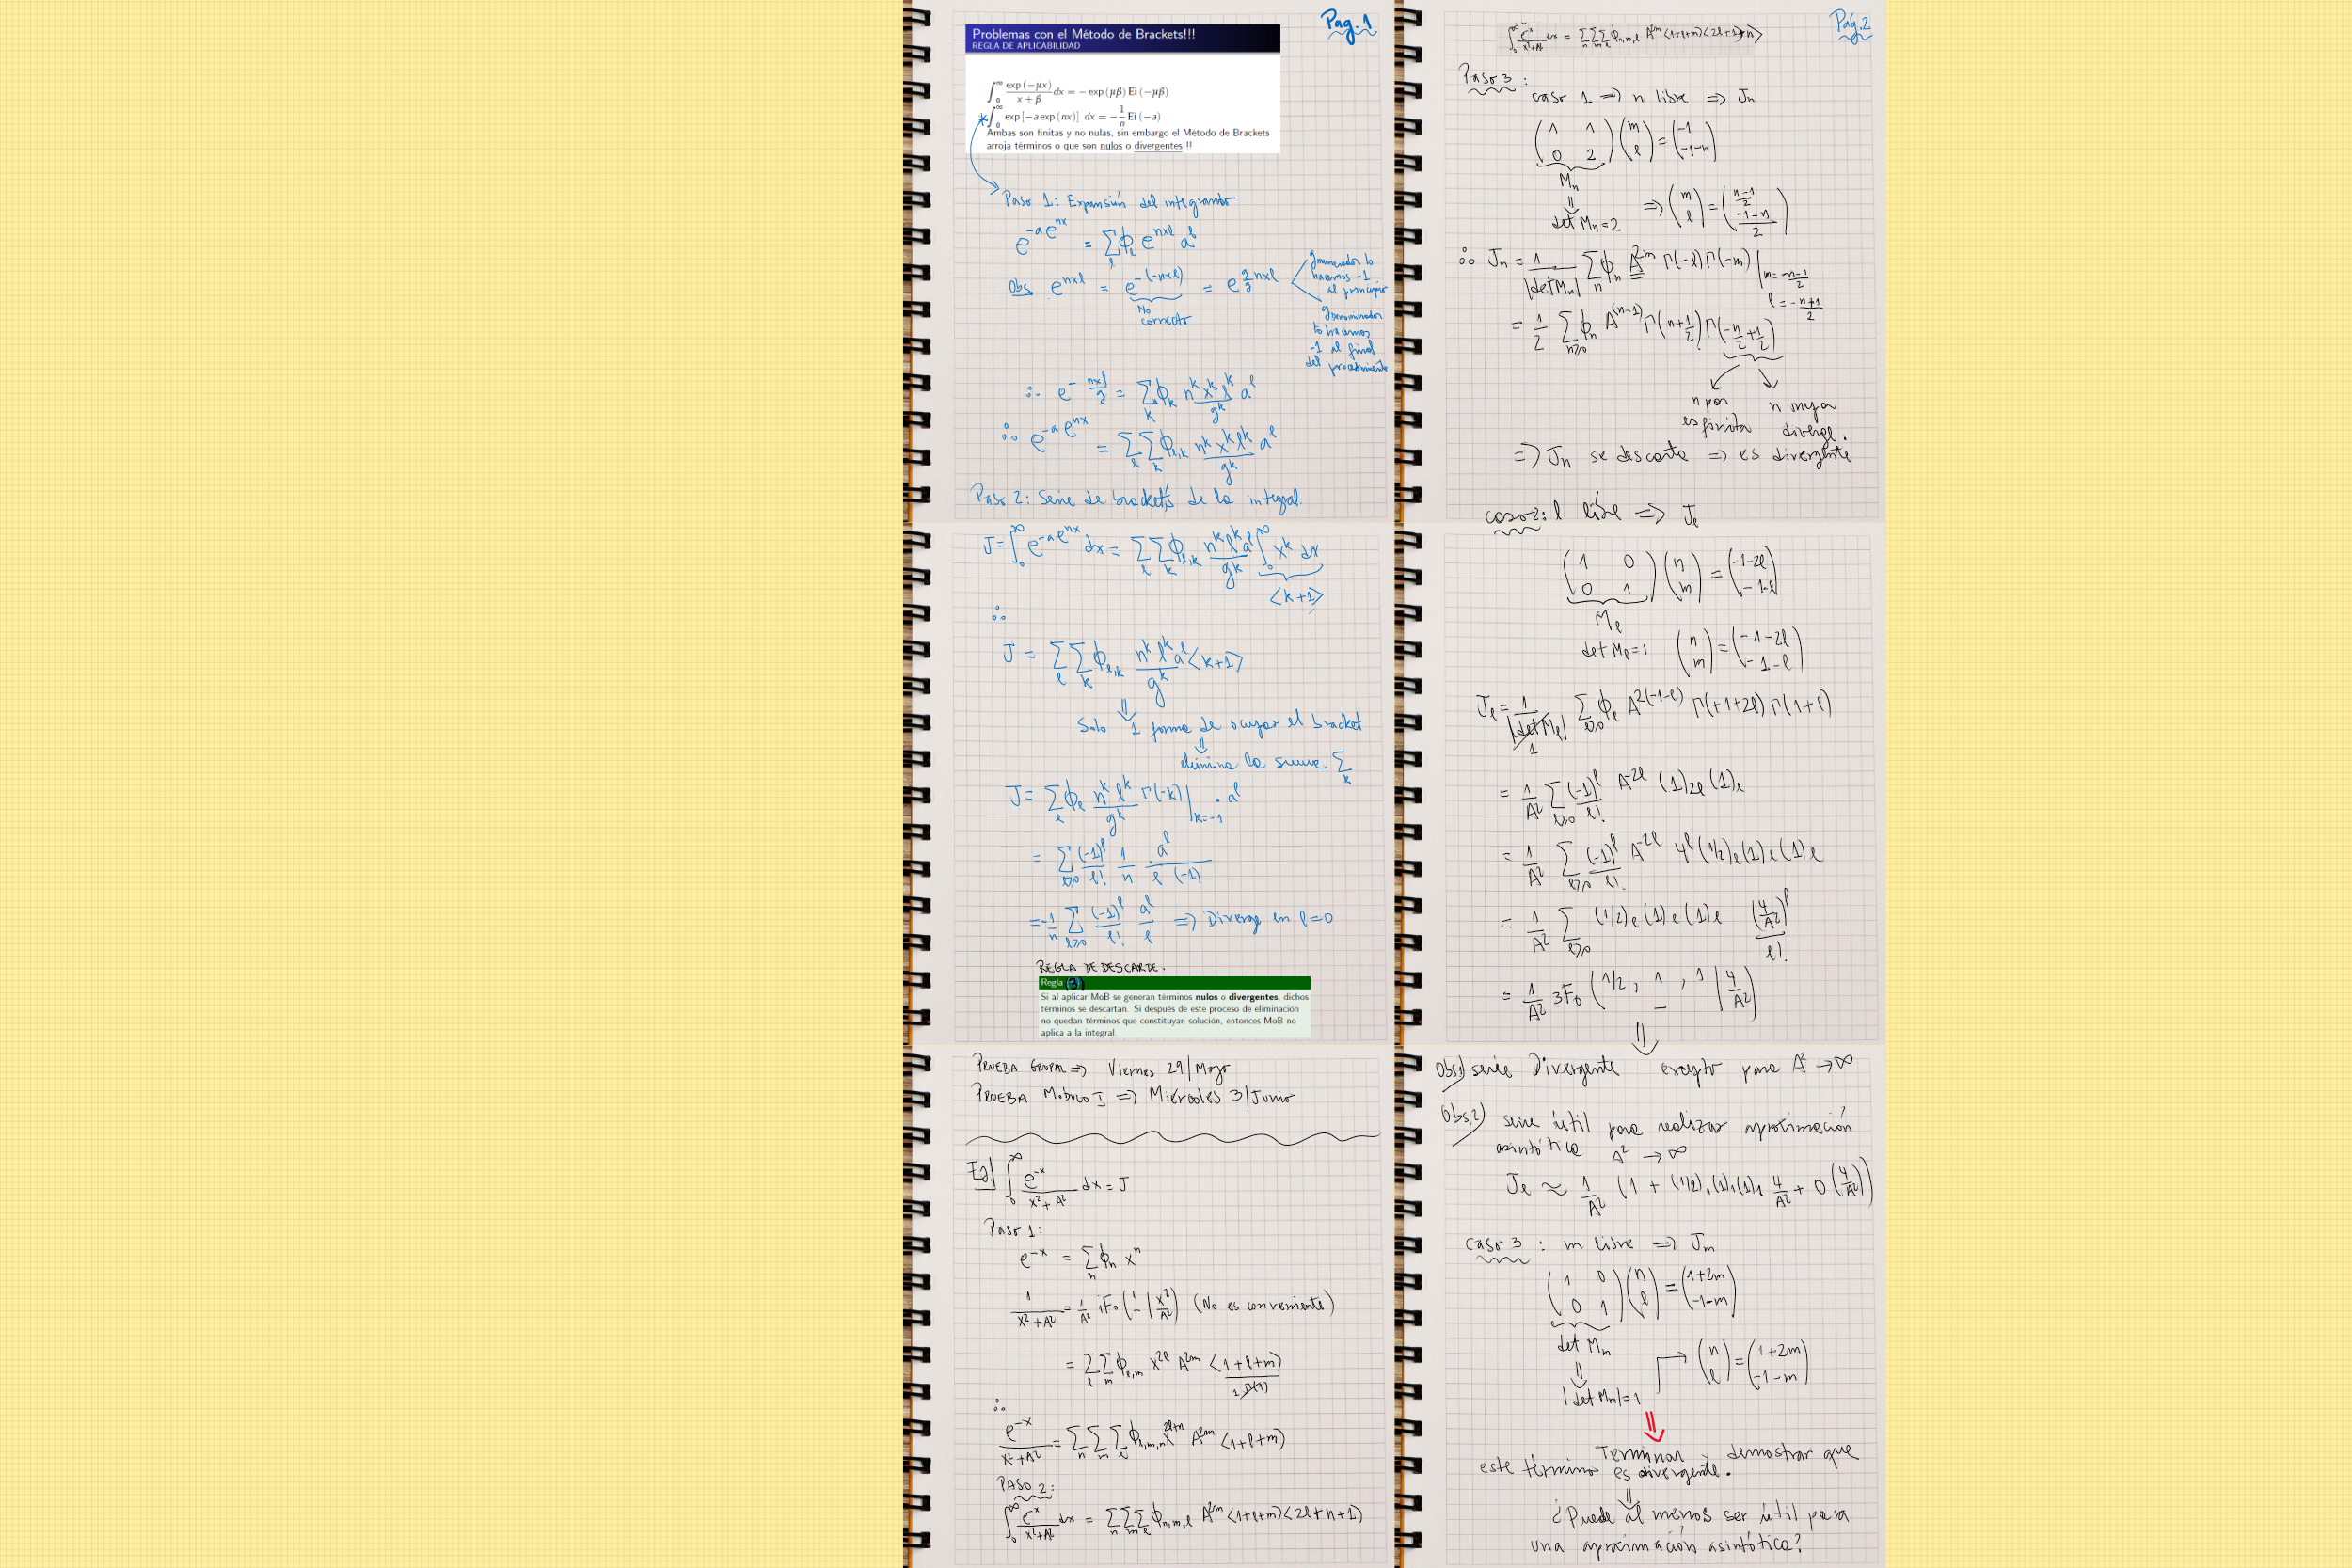 Pag.1
Problemas con el Método de Brackets!!!
REGLA DE APLICABILIDAD
∫₀^∞ exp(−μx)/(x+β) dx = − exp(μβ) Ei(−μβ)
∫₀^∞ exp[−a exp(nx)] dx = −1/n Ei(−a)
Ambas son finitas y no nulas, sin embargo el Método de Brackets
arroja términos o que son nulos o divergentes!!!
Paso 1: Expansión del integrando
e^{-a e^{nx}} = Σ_l ϕ_l e^{nxl} a^l
Obs e^{nxl} = e^{-(-nxl)} = e^{g/g nxl}
No
correcto
g numerador lo
hacemos -1
al principio
g denominador
lo hacemos
-1 al final
del procedimiento
∴ e^{-nxl/g} = Σ_k ϕ_k n^k x^k l^k / g^k a^l
∴ e^{-a e^{nx}} = Σ_l Σ_k ϕ_{l,k} n^k x^k l^k / g^k a^l
Paso 2: Serie de brackets de la integral:
J = ∫₀^∞ e^{-a e^{nx}} dx = Σ_l Σ_k ϕ_{l,k} n^k l^k a^l / g^k ∫₀^∞ x^k dx
<k+1>
∴
J = Σ_l Σ_k ϕ_{l,k} n^k l^k a^l / g^k <k+1>
⇓
Solo 1 forma de ocupar el bracket
⇓
elimina la suma Σ_k
J = Σ_l ϕ_l n^k l^k / g^k Γ(-k)|_{k=-1} · a^l
= Σ_{l≥0} (-1)^l / l! 1/n · a^l / l (-1)
= -1/n Σ_{l≥0} (-1)^l / l! a^l / l ⇒ Diverge en l=0
REGLA DE DESCARTE.
Regla (3)
Si al aplicar MoB se generan términos nulos o divergentes, dichos
términos se descartan. Si después de este proceso de eliminación
no quedan términos que constituyan solución, entonces MoB no
aplica a la integral.
PRUEBA GRUPAL ⇒ Viernes 29/Mayo
PRUEBA Módulo I ⇒ Miércoles 3/Junio
Ej] ∫₀^∞ e^{-x} / (x²+A²) dx = J
Paso 1:
e^{-x} = Σ_n ϕ_n x^n
1/(x²+A²) = 1/A² ₁F₀(1 − | x²/A²) (No es conveniente)
= Σ_l Σ_m ϕ_{l,m} x^{2l} A^{2m} <1+l+m> / Γ(1) 1
∴
e^{-x}/(x²+A²) = Σ_n Σ_m Σ_l ϕ_{l,m,n} x^{2l+n} A^{2m} <1+l+m>
PASO 2:
∫₀^∞ e^{-x}/(x²+A²) dx = Σ_n Σ_m Σ_l ϕ_{n,m,l} A^{2m} <1+l+m><2l+n+1>
Pág.2
∫₀^∞ e^{-x}/(x²+A²) dx = Σ_n Σ_m Σ_l ϕ_{n,m,l} A^{2m} <1+l+m><2l+1+n>
Paso 3:
caso 1 ⇒ n libre ⇒ J_n
(1 1; 0 2)(m; l) = (-1; -1-n)
M_n
⇓
det M_n = 2 ⇒ (m; l) = ((n-1)/2; (-1-n)/2)
∴ J_n = 1/|det M_n| Σ_n ϕ_n A^{2m} Γ(-l)Γ(-m) | m = (n-1)/2
l = -(n+1)/2
= 1/2 Σ_{n≥0} ϕ_n A^{(n-1)} Γ(n+1/2) Γ(-n/2+1/2)
n par
es finita
n impar
diverge.
⇒ J_n se descarta ⇒ es divergente
caso 2: l libre ⇒ J_l
(1 0; 0 1)(n; m) = (-1-2l; -1-l)
M_l
det M_l = 1 (n; m) = (-1-2l; -1-l)
J_l = 1/|det M_l| Σ_{l≥0} ϕ_l A^{2(-1-l)} Γ(+1+2l) Γ(1+l)
1
= 1/A² Σ_{l≥0} (-1)^l / l! A^{-2l} (1)_{2l} (1)_l
= 1/A² Σ_{l≥0} (-1)^l / l! A^{-2l} 4^l (1/2)_l (1)_l (1)_l
= 1/A² Σ_{l≥0} (1/2)_l (1)_l (1)_l (4/A²)^l / l!
= 1/A² ₃F₀(1/2, 1, 1 − | 4/A²)
⇓
Obs1) serie Divergente excepto para A² → ∞
Obs.2) serie útil para realizar aproximación
asintótica A² → ∞
J_l ≈ 1/A² (1 + (1/2)₁(1)₁(1)₁ 4/A² + O(4/A²))
caso 3 : m libre ⇒ J_m
(1 0; 0 1)(n; l) = (1+2m; -1-m)
det M_n
⇓
|det M_m| = 1
(n; l) = (1+2m; -1-m)
⇓
Terminar y demostrar que
este término es divergente.
⇓
¿Puede al menos ser útil para
una aproximación asintótica?